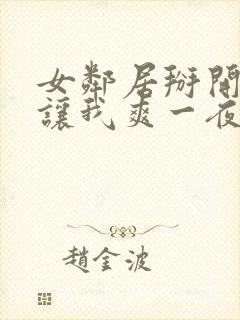 女鄰居掰開
讓我爽一夜
趙金波